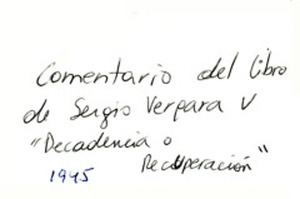 Comentario del libro
de Sergio Vergara V
"Decadencia o
Recuperación"
1945